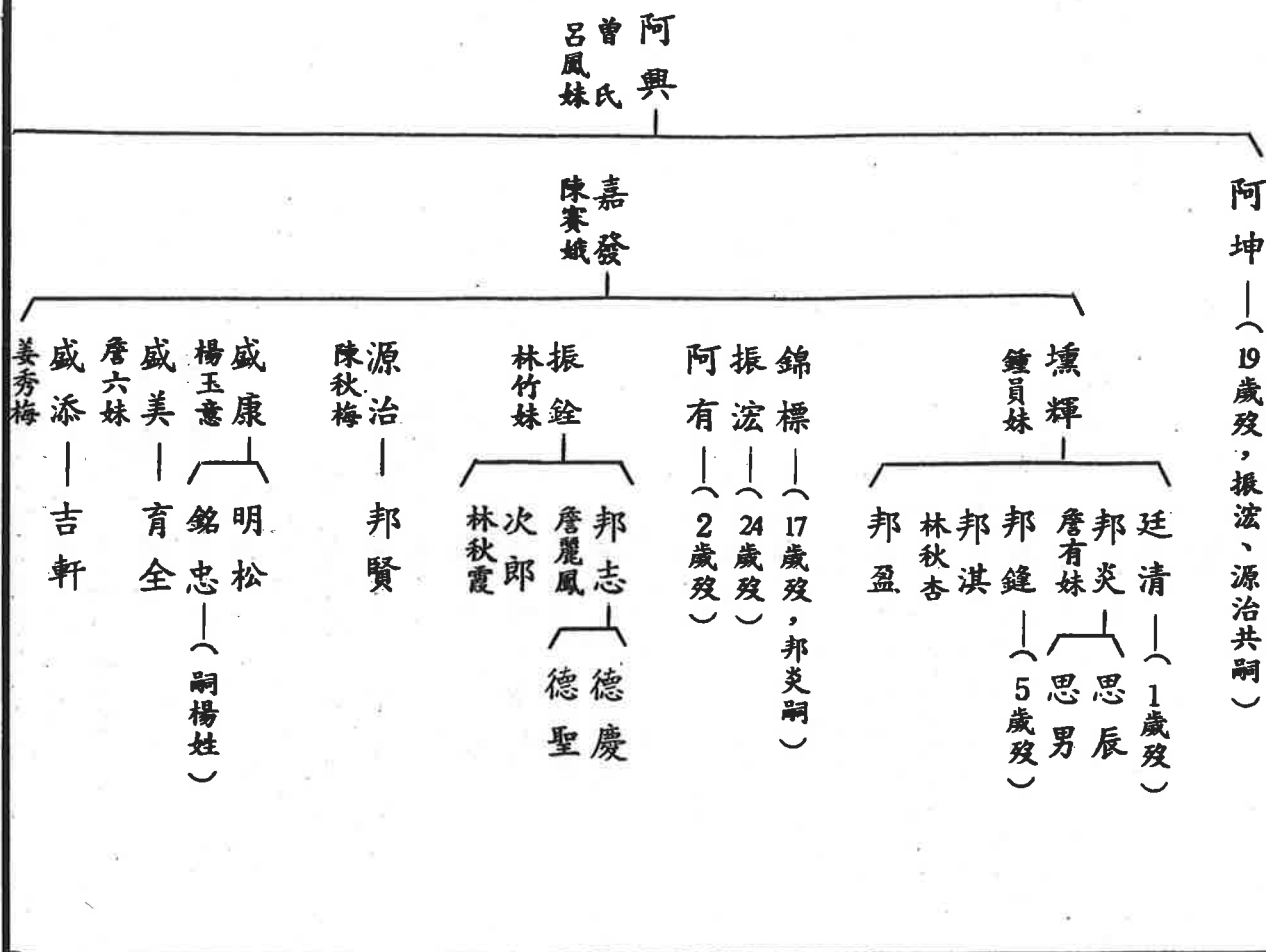 阿興
曾氏
呂鳳妹
阿坤—(19歲歿,振浤、源治共嗣)
嘉發
陳賽娥
壎輝
鍾員妹
廷清—(1歲歿)
邦炎
詹有妹
思辰
思男
邦鋒—(5歲歿)
邦淇
林秋杏
邦盈
錦標—(17歲歿,邦炎嗣)
振浤—(24歲歿)
阿有—(2歲歿)
振銓
林竹妹
邦志
詹麗鳳
德慶
德聖
次郎
林秋霞
源治—邦賢
陳秋梅
盛康
楊玉意
明松
銘忠—(嗣楊姓)
盛美—育全
詹六妹
盛添—吉軒
姜秀梅